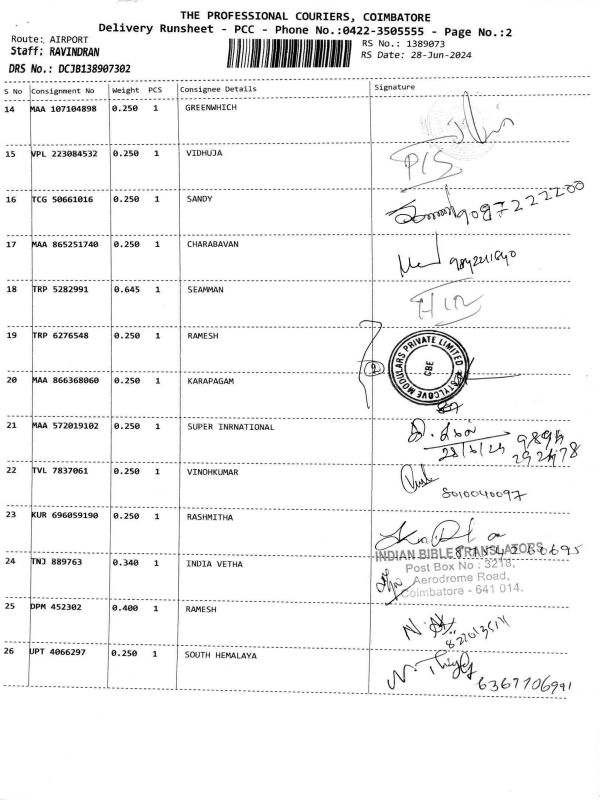 THE PROFESSIONAL COURIERS, COIMBATORE
Delivery Runsheet - PCC - Phone No.:0422-3505555 - Page No.:2
Route: AIRPORT
RS No.: 1389073
Staff: RAVINDRAN
RS Date: 28-Jun-2024
DRS No.: DCJB138907302
S No Consignment No Weight PCS Consignee Details Signature
14 MAA 107104898 0.250 1 GREENWHICH
15 VPL 223084532 0.250 1 VIDHUJA P/S
16 TCG 50661016 0.250 1 SANDY 9087222200
17 MAA 865251740 0.250 1 CHARABAVAN
18 TRP 5282991 0.645 1 SEAMMAN
19 TRP 6276548 0.250 1 RAMESH
MODULARS PRIVATE LIMITED
CBE
20 MAA 866368060 0.250 1 KARAPAGAM
21 MAA 572019102 0.250 1 SUPER INRNATIONAL
28/6/24
22 TVL 7837061 0.250 1 VINOHKUMAR
8010040097
23 KUR 696059190 0.250 1 RASHMITHA
24 TNJ 889763 0.340 1 INDIA VETHA
INDIAN BIBLE TRANSLATORS
Post Box No : 3218,
Aerodrome Road,
Coimbatore - 641 014.
25 DPM 452302 0.400 1 RAMESH
26 UPT 4066297 0.250 1 SOUTH HEMALAYA
6367706991